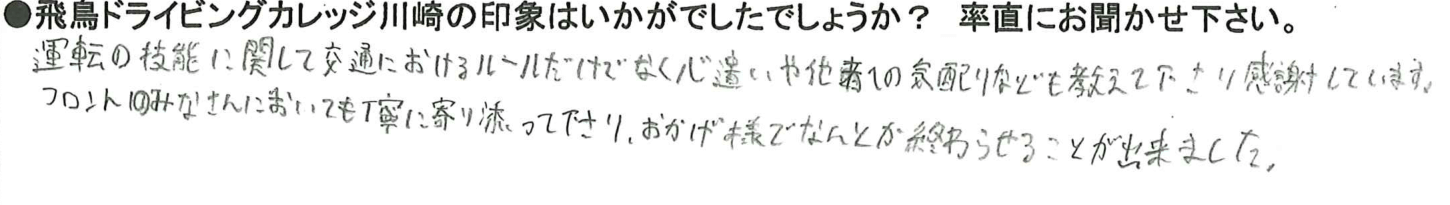 ●飛鳥ドライビングカレッジ川崎の印象はいかがでしたでしょうか？ 率直にお聞かせ下さい。
運転の技能に関して交通におけるルールだけでなく心遣いや他者への気配りなども教えて下さり感謝しています。
フロントのみなさんにおいても丁寧に寄り添って下さり、おかげ様でなんとか終わらせることが出来ました。